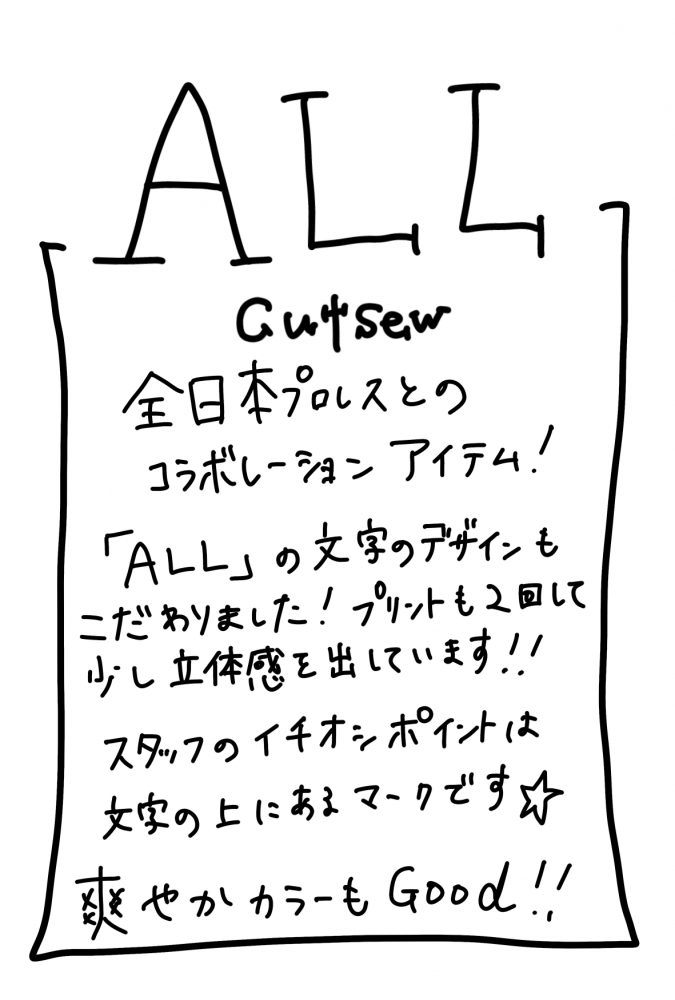 ALL
Cutsew
全日本プロレスとの
コラボレーション アイテム!
「ALL」の文字のデザインも
こだわりました! プリントも2回して
少し立体感を出しています!!
スタッフのイチオシポイントは
文字の上にあるマークです☆
爽やかカラーもGood!!